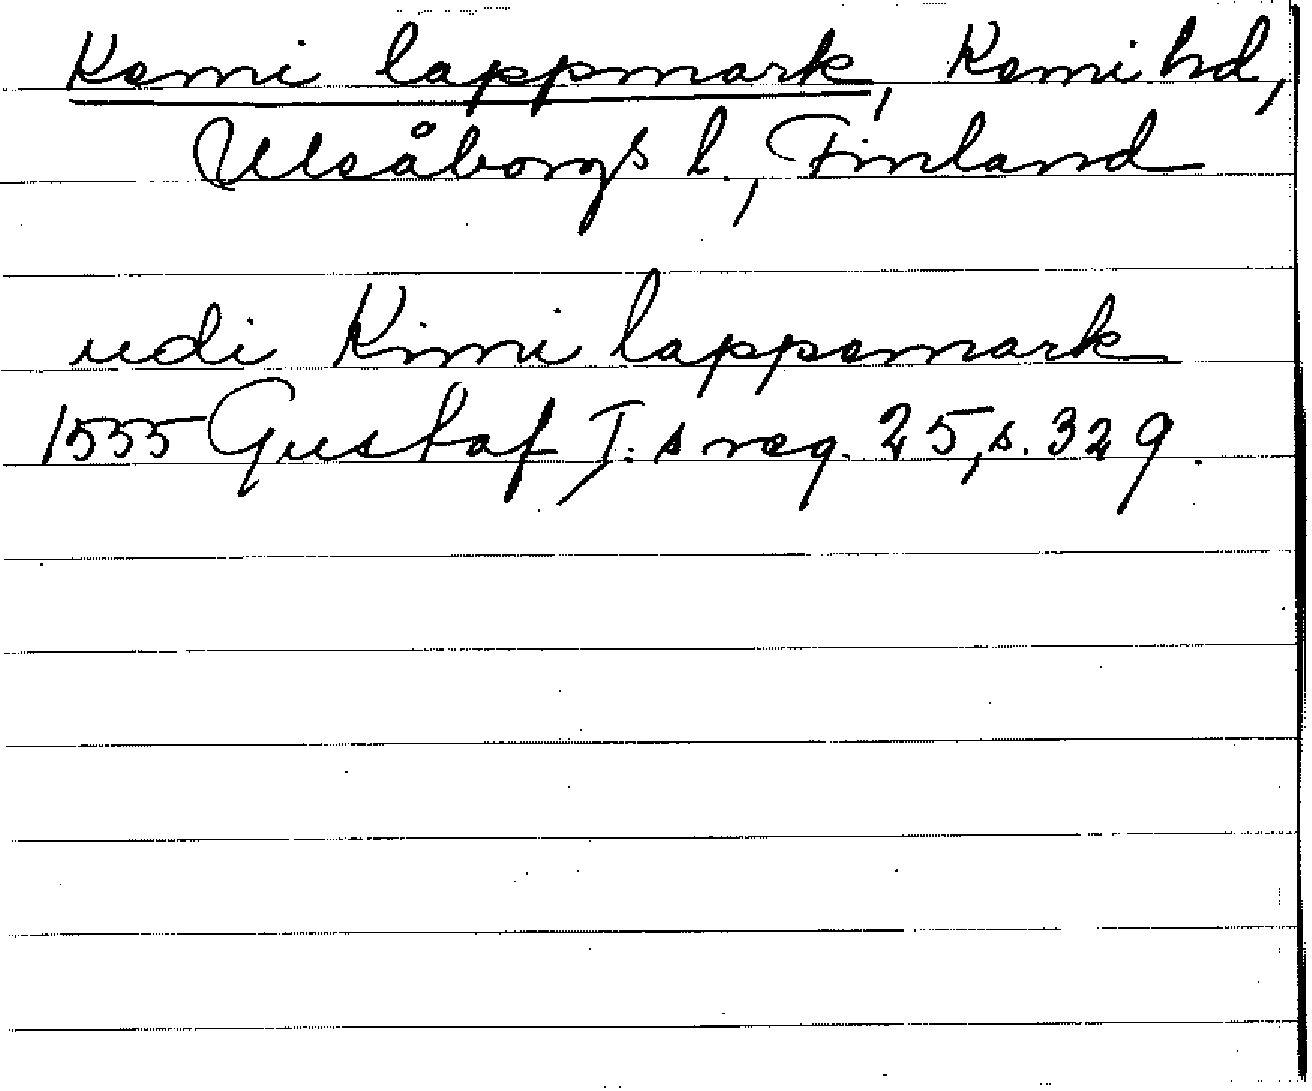 Kemi lappmark, Kemi hd,
Uleåborgs l., Finland
udi Kimi lappemark
1555 Gustaf I:s reg. 25, s. 329.